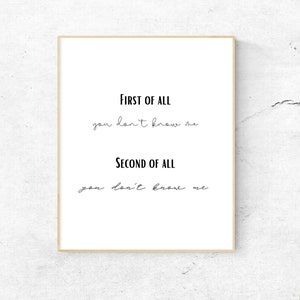 First of all
you don't know me
Second of all
you don't know me